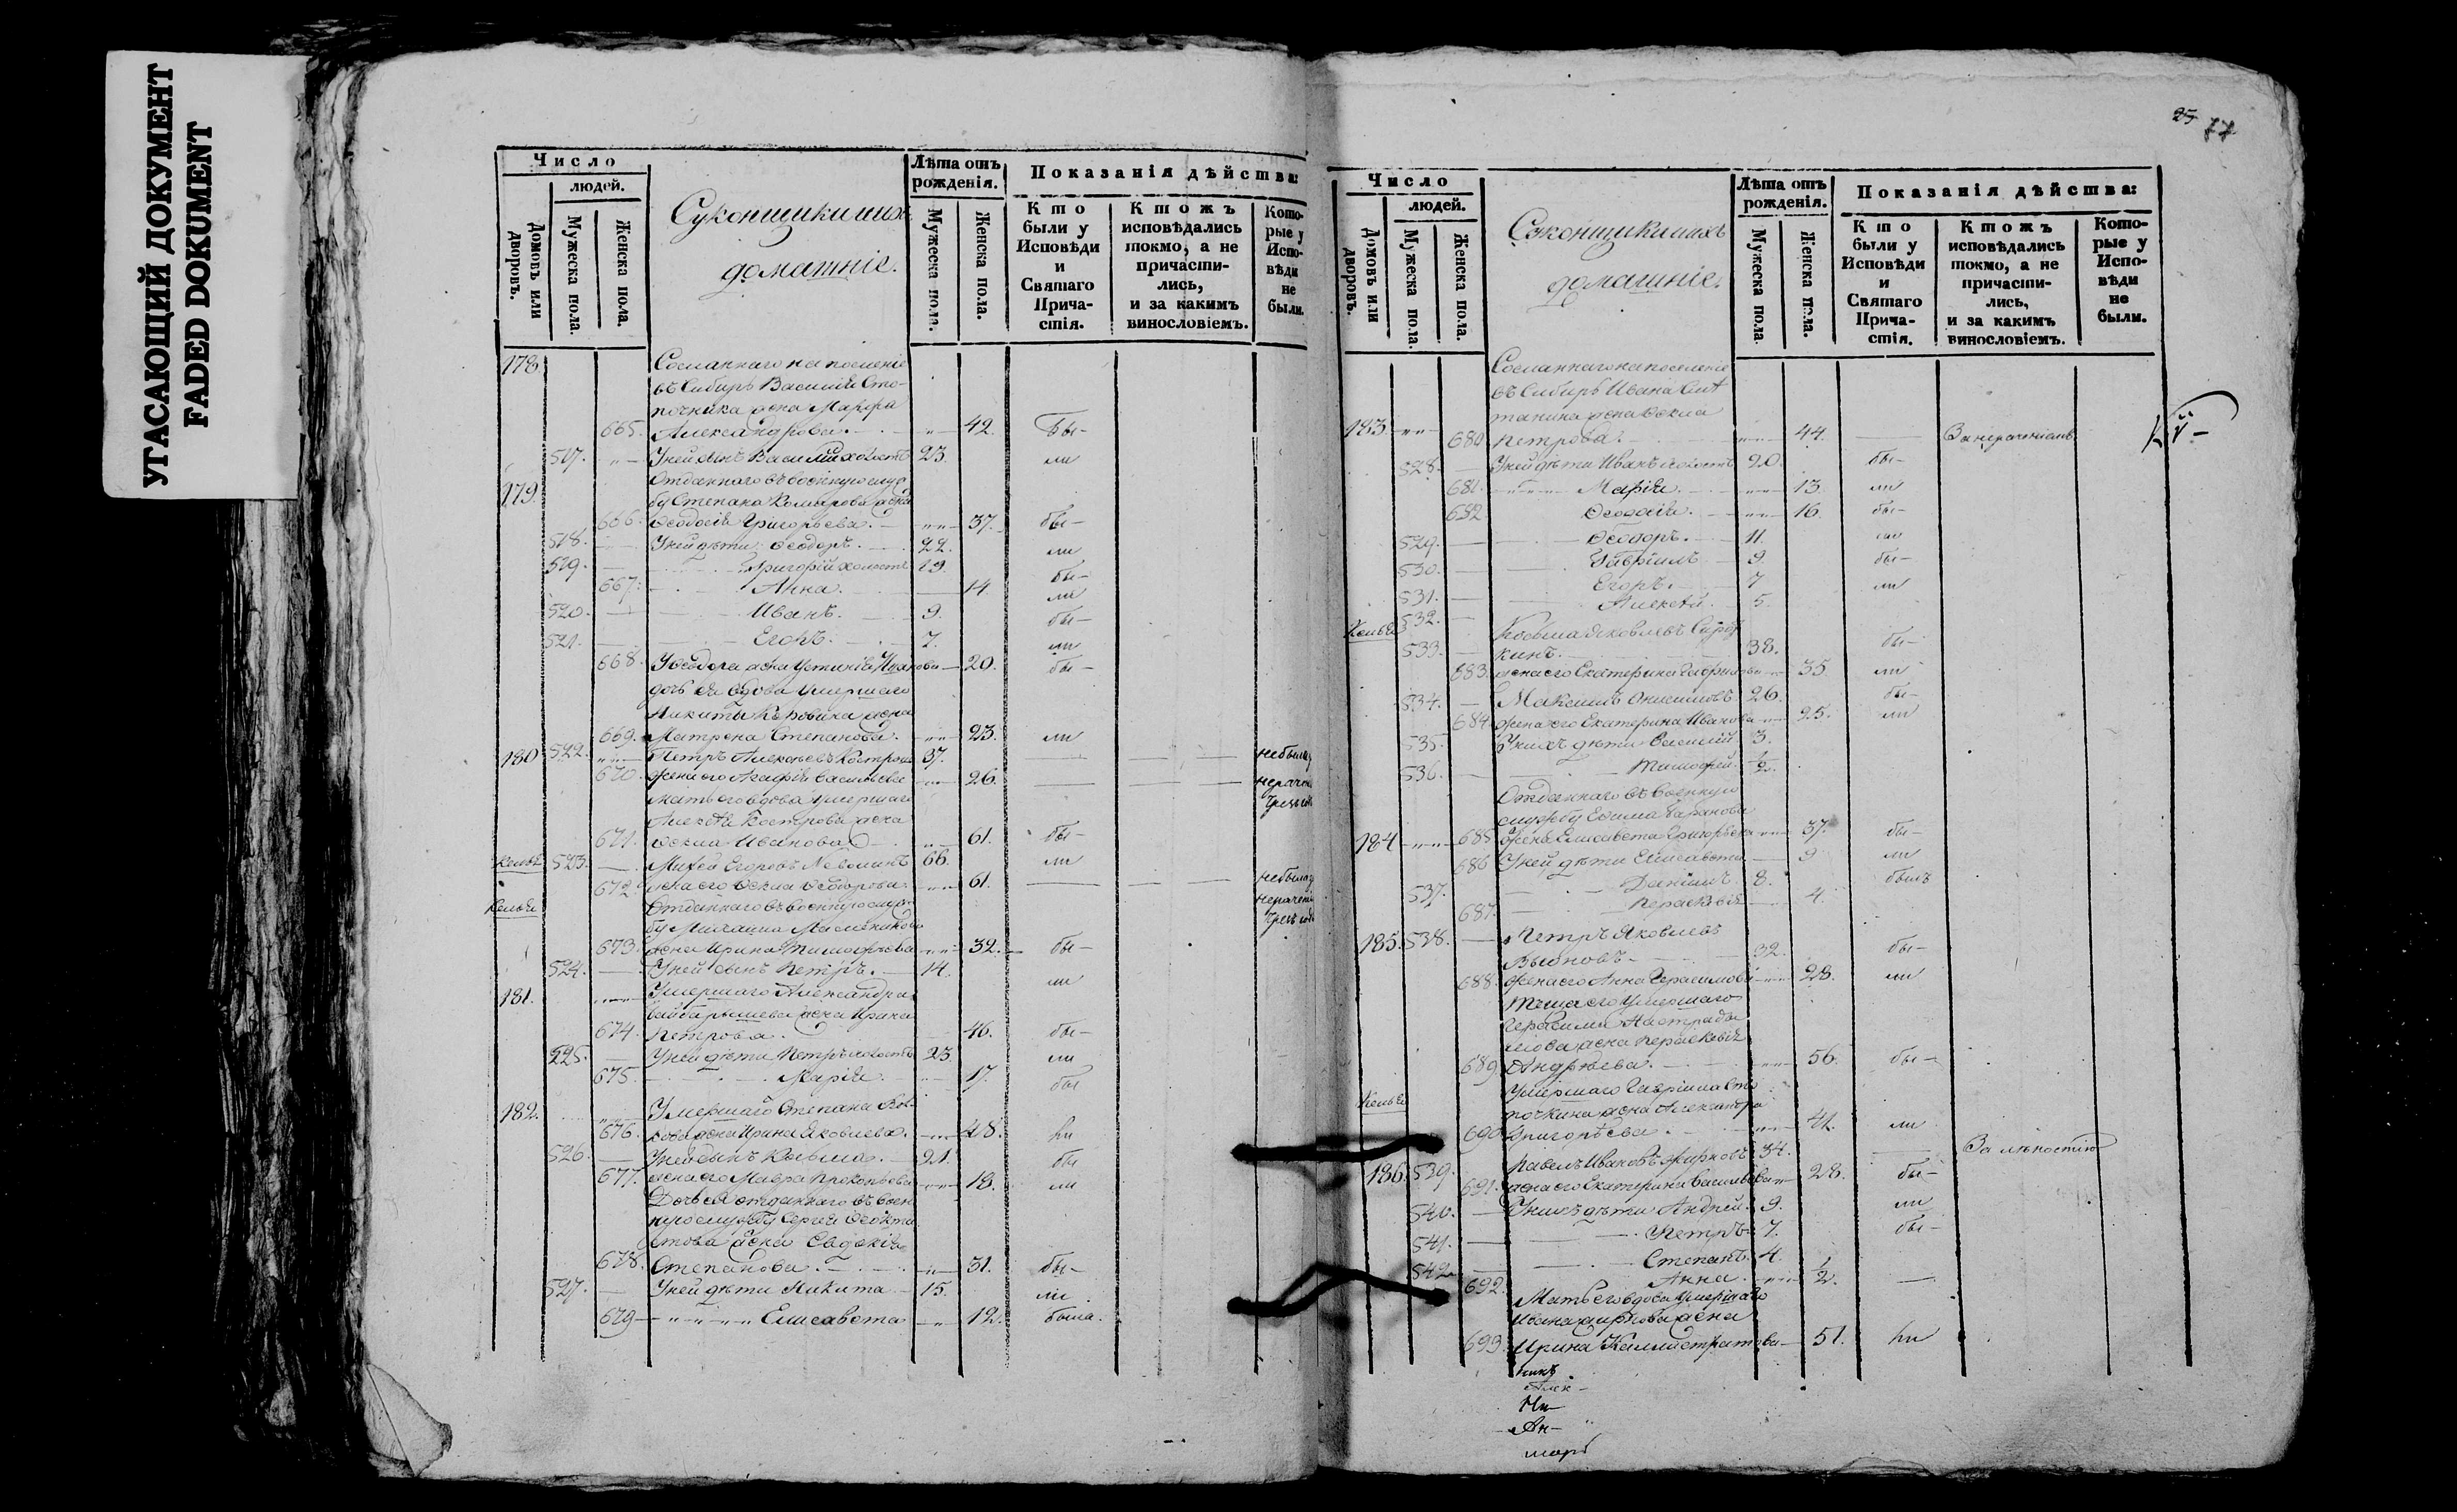 УГАСАЮЩИЙ ДОКУМЕНТ
FADED DOKUMENT
Число
людей.
Домовъ или дворовъ.
Мужеска пола.
Женска пола.
Суконщики ихъ
домашніе.
Лѣта отъ рожденія.
Мужеска пола.
Женска пола.
Показанія дѣйства:
Кто были у Исповѣди и Святаго Прича- стія.
Ктожъ исповѣдались токмо, а не причасти- лись, и за какимъ винословіемъ.
Кото- рые у Испо- вѣди не были.
178 Сосланнаго на поселеніе
въ Сибирь Василія Сто-
почкина жена Марфа
665. Александрова. 42. бы-
517. У ней сынъ Василій холостъ 23. ли
179. Отданнаго въ военную служ
бу Степана Комарова жена
666. Ѳеодосія Григорьева. 37. бы-
518. У ней дѣти Ѳеодоръ. 22. ли
519. Григорій холостъ 19. бы-
667. Анна. 14 ли
520. Иванъ. 9. бы-
521. Егоръ. 7. ли
668. У Ѳеодора жена Устинія Иванова 20. бы-
дочь ея вдова умершаго
Никиты жена
669. Матрена Степанова. 23. ли
180 522. Петръ Алексѣевъ Костровъ 37. не былъ
670. жена его Агафія Васильева 26.
мать его вдова умершаго
Алексѣя Кострова жена
671. Ѳекла Иванова 61. бы-
Келья 523. Михей Егоровъ 66. ли
672. жена его Ѳекла Ѳеодорова 61.
Келья Отданнаго въ военную служ
бу Михаила Масленикова
673. жена Ирина Тимофѣева 32. бы-
524. У ней сынъ Петръ. 14. ли
181. Умершаго Александра
Байбарышева жена Ирина
674. Петрова. 46. бы-
525. У ней дѣти Петръ холостъ 23 ли
675. Марія 17. бы
182. Умершаго Степана
676. жена Ирина Яковлева. 48. ли
526. У ней сынъ Козьма. 21. бы
677. жена его Мавра Прокопьева 18. ли
Дочь ея отданнаго въ воен
ную службу Сергея Ѳеокти
стова жена Евдокія
678. Степанова. 31. бы-
527. У ней дѣти Никита 15. ли
679 Елисавета 12. была.
25 77
Число
людей.
Домовъ или дворовъ.
Мужеска пола.
Женска пола.
Суконщики ихъ
домашніе.
Лѣта отъ рожденія.
Мужеска пола
Женска пола.
Показанія дѣйства:
Кто были у Исповѣди и Святаго Прича- стія.
Ктожъ исповѣдались токмо, а не причасти- лись, и за какимъ винословіемъ.
Кото- рые у Испо- вѣди не были.
Сосланнаго на поселеніе
въ Сибирь Ивана
жена Ѳекла
183 680 Петрова. 44. За нераченіемъ
528. У ней дѣти Иванъ холостъ 20. бы-
681. Марія. 13. ли
682 Ѳеодосія. 16. бы-
529. Ѳеодоръ. 11. ли
530. Гавріилъ 9. бы-
531. Егоръ. 7 ли
532. Алексѣй. 5.
Келья Козьма Яковлевъ
533. кинъ. 38. бы-
683. жена его Екатерина Гаврилова 35 ли
534. Максимъ Онисимовъ 26. бы-
684. жена его Екатерина Иванова 25. ли
535. У нихъ дѣти Василій 3.
536. Тимофей. 1/2.
Отданнаго въ военную
службу Ефима Баранова
184 685 жена Елисавета Григорьева 37. бы-
686 У ней дѣти Елисавета 9 ли
537. Даніилъ 8. былъ
687. Пераскевія 4.
185. 538. Петръ Яковлевъ
Вьюновъ. 32. бы-
688. жена его Анна Герасимова 28. ли
теща его умершаго
Герасима
жена Пераскевія
689. Андреева. 56. бы-
Келья Умершаго Гавріила Сто
почкина жена Александра
690 Григорьева. 41. ли
186. 539. Павелъ Ивановъ Жирновъ 34. За лѣностію
691. жена его Екатерина Васильева 28. бы-
540. У нихъ дѣти Андрей. 9. ли
541. Петръ 7. бы-
542. Степанъ. 4.
692. Анна. 1/2.
Мать его вдова умершаго
Ивана Жирнова жена
693. Ирина Каллистратова 51. ли